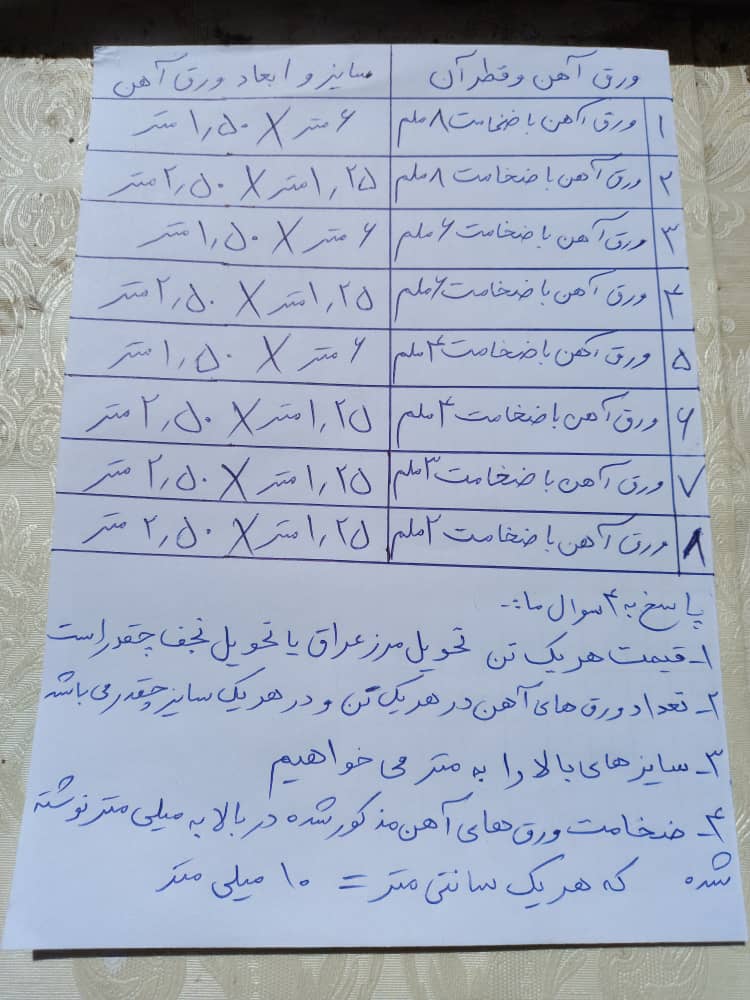 ورق آهن و قطر آن	سایز و ابعاد ورق آهن
۱	ورق آهن با ضخامت ۸ ملم	۶ متر X ۱٫۵۰ متر
۲	ورق آهن با ضخامت ۸ ملم	۱٫۲۵ متر X ۲٫۵۰ متر
۳	ورق آهن با ضخامت ۶ ملم	۶ متر X ۱٫۵۰ متر
۴	ورق آهن با ضخامت ۶ ملم	۱٫۲۵ متر X ۲٫۵۰ متر
۵	ورق آهن با ضخامت ۴ ملم	۶ متر X ۱٫۵۰ متر
۶	ورق آهن با ضخامت ۴ ملم	۱٫۲۵ متر X ۲٫۵۰ متر
۷	ورق آهن با ضخامت ۳ ملم	۱٫۲۵ متر X ۲٫۵۰ متر
۸	ورق آهن با ضخامت ۲ ملم	۱٫۲۵ متر X ۲٫۵۰ متر
پاسخ به ۴ سوال ما:-
۱- قیمت هر یک تن تحویل مرز عراق یا تحویل نجف چقدر است
۲- تعداد ورق های آهن در هر یک تن و در هر یک سایز چقدر می باشد
۳- سایز های بالا را به متر می خواهیم
۴- ضخامت ورق های آهن مذکور شده در بالا به میلی متر نوشته
شده که هر یک سانتی متر = ۱۰ میلی متر